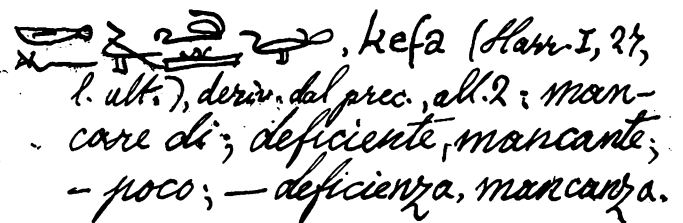 , kefa (Harr. I, 27,
l. ult.), deriv. dal prec., all. 2; man-
care di; deficiente, mancante;
- poco; — deficienza, mancanza.